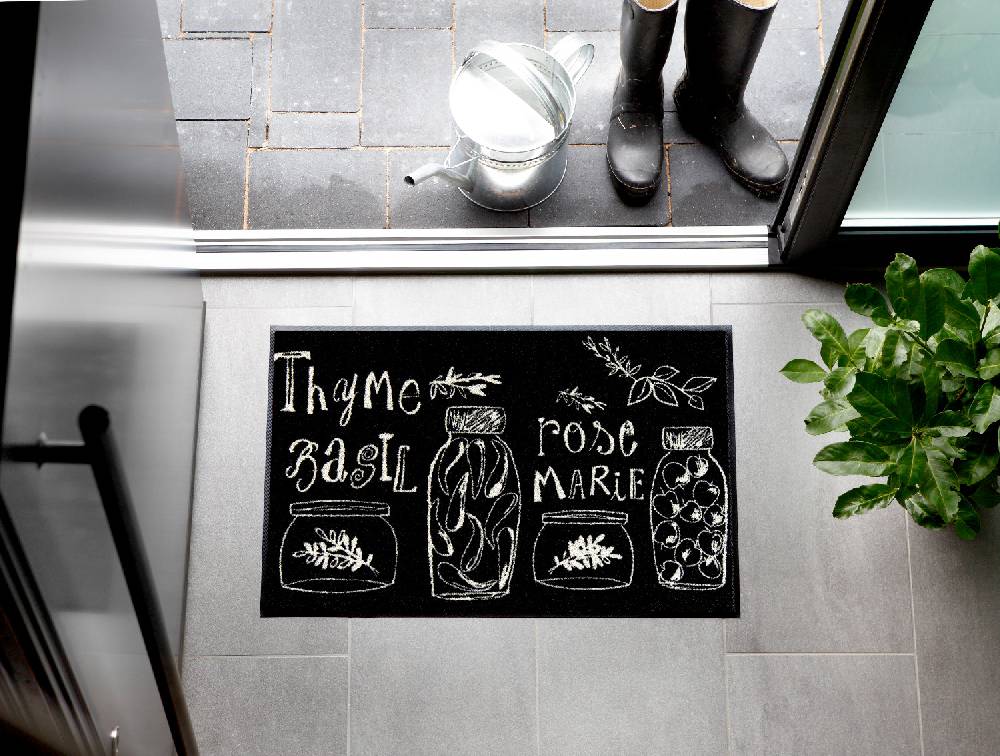 Thyme
BasIL
rose
MARiE